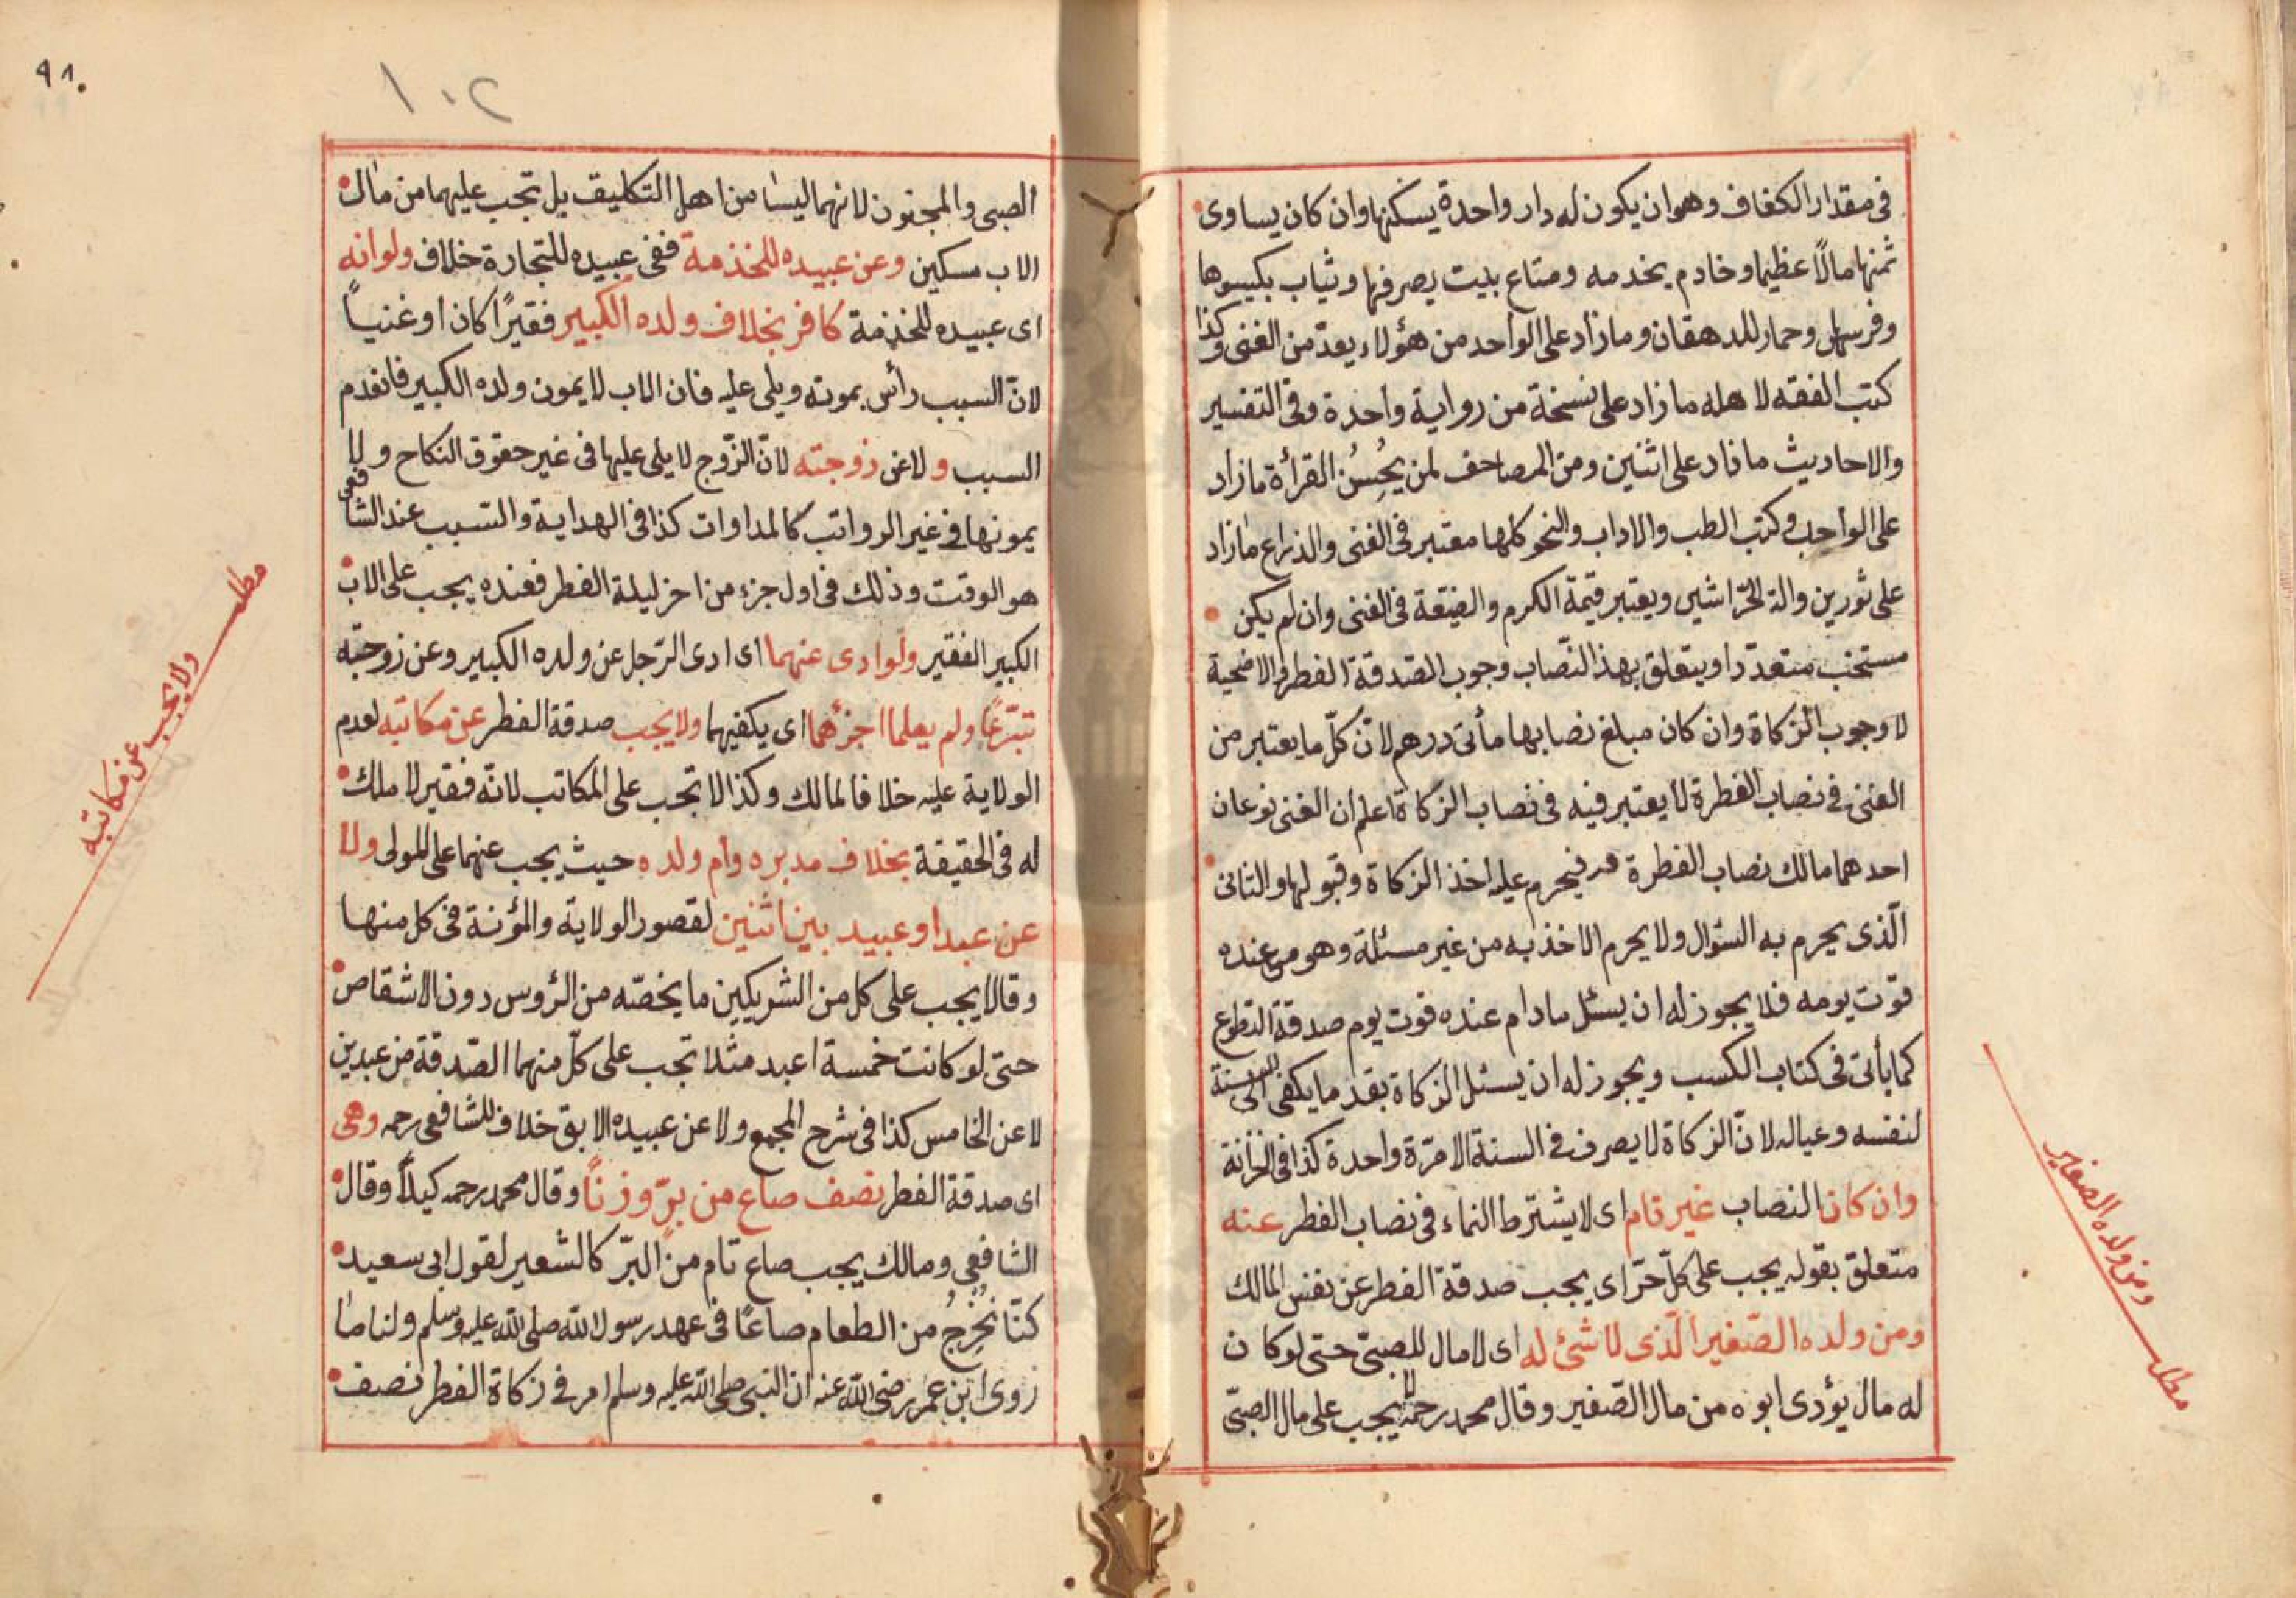 فى مقدار الكفاف وهو ان يكون له دار واحدة يسكنها وان كان يساوى
ثمنها مالاً عظيما وخادم يخدمه ومتاع بيت يصرفها وثياب يكيسوها
وفرسه وحمار للدهقان وما زاد على الواحد من هؤلاء يعدّ من الغنى وكذا
كتب الفقه لاهله ما زاد على نسخة من رواية واحدة وفى التفسير
والاحاديث ما زاد على اثنين ومن المصاحف لمن يُحسِنُ القرأة ما زاد
على الواحد وكتب الطب والاداب والنحو كلها معتبر فى الغنى والذراع ما زاد
على ثورين والة ويعتبر قيمة الكرم والضيعة فى الغنى وان لم يكن
متعددا ويتعلق بهذا النّصاب وجوب الصّدقة الفطر والاضحية
لا وجوب الزكاة وان كان مبلغ نصابها مأتى درهم لانّ كلّ ما يعتبر من
الغنى فى نصاب الفطرة لا يعتبر فيه فى نصاب الزكاة اعلم ان الغنى نوعان
احدهما مالك نصاب الفطرة فيحرم عليه اخذ الزكاة وقبولها والثانى
الّذى يحرم به السّؤال ولا يحرم الاخذ به من غير مسئلة وهو من عنده
قوت يومه فلا يجوز له ان يسئل مادام عنده قوت يوم صدقة التطوع
كما يأتى فى كتاب الكسب ويجوز له ان يسئل الزكاة بقدر ما يكفى الى السنة
لنفسه وعياله لانّ الزكاة لا يصرف فى السنة الا مرّة واحدة كذا فى الخزانة
وان كان النصاب غير تام اى لا يشترط النماء فى نصاب الفطر عنه
متعلق بقوله يجب على كلّ حرّ اى يجب صدقة الفطر عن نفس المالك
ومن ولده الصّغير الّذى لا شئ له اى لا مال للصبىّ حتى لو كان
له مال يؤدى ابوه من مال الصّغير وقال محمد رحمه الله يجب على مال الصبىّ
ومن ولده الصغير
مطلب
٩١
١٠٢
الصبى والمجنون لانهما ليسا من اهل التكليف بل تجب عليهما من مال
الاب مسكين وعن عبيده للخذمة ففى عبيده للتجارة خلاف ولو انه
اى عبيده للخذمة كافر بخلاف ولده الكبير فقيرًا كان او غنيّاً
لانّ السبب رأس يمونه ويلى عليه فان الاب لا يمون ولده الكبير فانعدم
السبب ولا عن زوجته لانّ الزّوج لا يلى عليها فى غير حقوق النكاح ولا
يمونها فى غير الرواتب كالمداوات كذا فى الهداية والسبب عند الشافعى
هو الوقت وذلك فى اول جزء من اخر ليلة الفطر فعنده يجب على الاب
الكبير الفقير ولو ادى عنهما اى ادى الرّجل عن ولده الكبير وعن زوجته
تبرّعًا ولم يعلما اجزءهما اى يكفيهما ولا يجب صدقة الفطر عن مكاتبه لعدم
الولاية عليه خلافا لمالك وكذا لا تجب على المكاتب لانّه فقير لا ملك
له فى الحقيقة بخلاف مدبره وام ولده حيث يجب عنهما على المولى ولا
عن عبد او عبيد بين اثنين لقصور الولاية والمؤنة فى كل منها
وقالا يجب على كل من الشريكين ما يخصّه من الرّؤوس دون الاشقاص
حتى لو كانت خمسة اعبد مثلا تجب على كلّ منهما الصّدقة من عبدين
لا عن الخامس كذا فى شرح المجمع ولا عن عبيده الابق خلاف للشافعى رحمه وهى
اى صدقة الفطر نصف صاع من برّ وزنًا وقال محمد رحمه كيلاً وقال
الشافعى ومالك يجب صاع تام من البرّ كالشعير لقول ابى سعيد
كنّا نُخرِجُ من الطعام صاعًا فى عهد رسول الله صلى الله عليه وسلم ولنا ما
روى ابن عمر رضى الله عنه ان النبى صلى الله عليه وسلم امر فى زكاة الفطر نصف
مطلب
ولا يجب عن مكاتبه